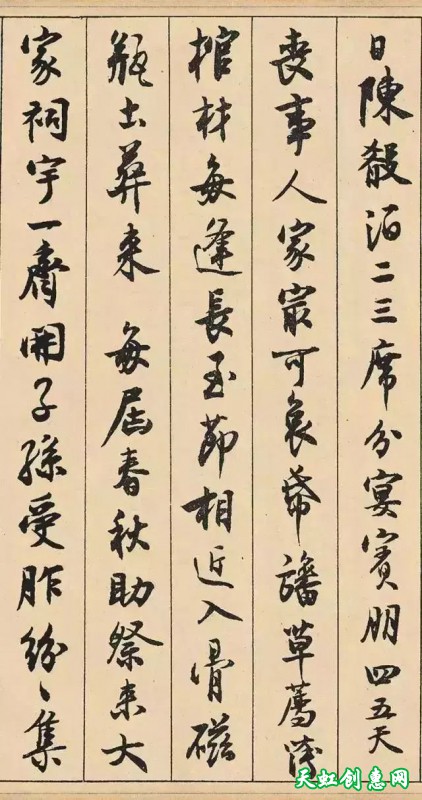 日陳殽酒二三席分宴賓朋四五天
喪事人家最可哀旛草薦
棺材每逢長至節相近入骨磁
瓶土葬來 每屆春秋助祭來大
家祠宇一齊開子孫受胙紛〻集
天虹创惠网